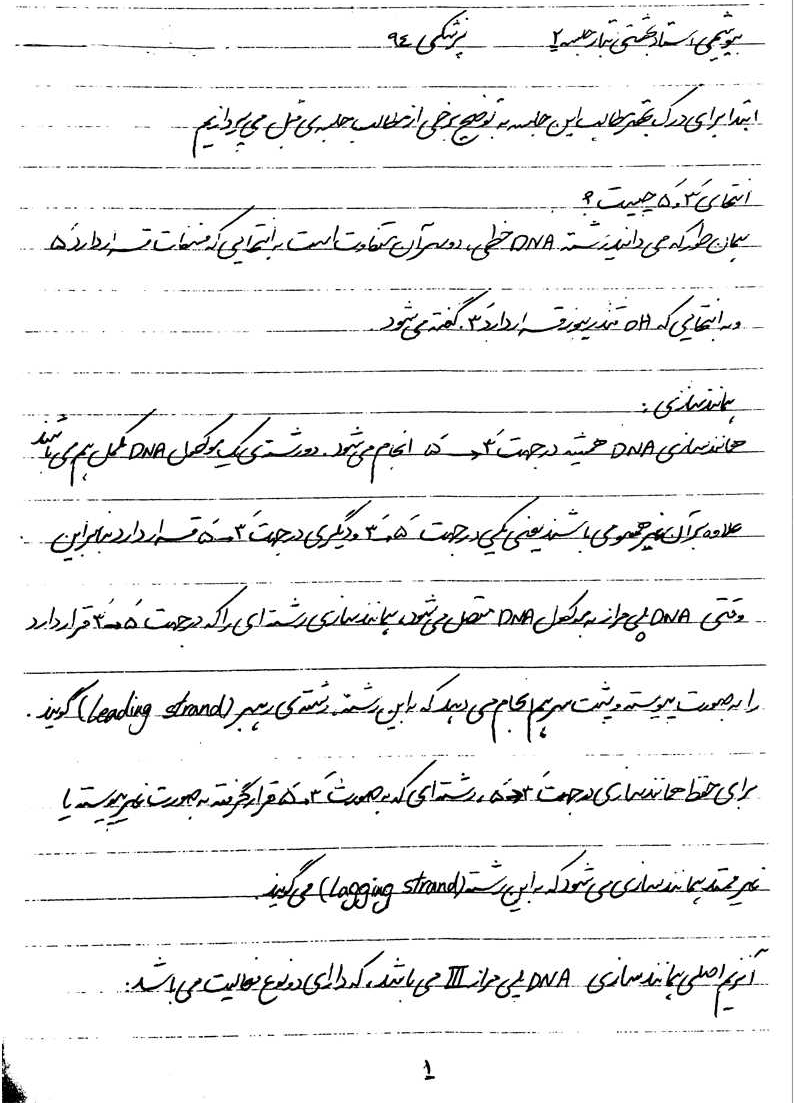 بیوشیمی استاد بهشتی تبار جلسه ۲ پزشکی ۹۴
ابتدا برای درک بهتر مطالب این جلسه به توضیح برخی از مطالب جلسه ی قبل می پردازیم
انتهای ۳َ و ۵َ چیست ؟
همان طور که می دانید رشته DNA خطی، دو سر آن متفاوت است به انتهایی که فسفات قرار دارد ۵َ
و به انتهایی که OH قند ریبوز قرار دارد ۳َ گفته می شود.
همانندسازی :
همانندسازی DNA همیشه در جهت ۳َ → ۵َ انجام می شود. دو رشته ی یک مولکول DNA مکمل هم می باشند
علاوه بر آن غیر همسو می باشند یعنی یکی در جهت ۵َ → ۳َ و دیگری در جهت ۳َ → ۵َ قرار دارد بنابراین
وقتی DNA پلی مراز به مولکول DNA متصل می شود، همانندسازی رشته ای را که در جهت ۵َ → ۳َ قرار دارد
را به صورت پیوسته و پشت سر هم انجام می دهد که به این رشته، رشته ی رهبر (Leading strand) گویند.
برای حفظ همانندسازی در جهت ۳َ → ۵َ، رشته ای که به صورت ۳َ → ۵َ قرار گرفته به صورت غیر پیوسته یا
غیر ممتد همانندسازی می شود که به این رشته (Lagging strand) می گویند.
آنزیم اصلی همانندسازی DNA پلی مراز III می باشد، که دارای دو نوع فعالیت می باشد:
1